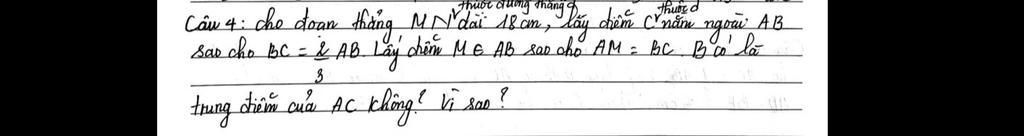 thuộc đường thẳng d thuộc d
Câu 4: cho đoạn thẳng MN dài 18cm, lấy điểm C nằm ngoài AB
sao cho BC = 2/3 AB. Lấy điểm M ∈ AB sao cho AM = BC. B có là
trung điểm của AC không? Vì sao?